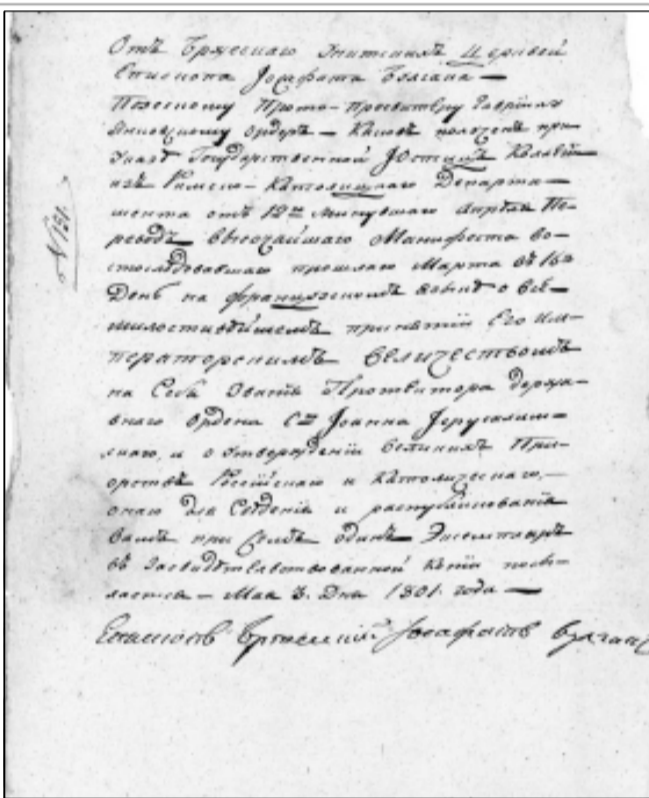 Отъ Бржескаго Унитскихъ Церквей
Епископа Іосафата Булгака —
Пинскому Прото-Пресвитеру
ордеръ — Каковъ полученъ при
Указѣ Государственной Юстицъ Колегіи
изъ Римско-Католицкаго Департа-
мента отъ 12го минувшаго Апрѣля Пе-
реводъ высочайшаго Манифеста во-
спослѣдовавшаго прошлаго Марта въ 16й
День на французскомъ языкѣ о все-
милостивѣйшемъ принятіи Его Им-
ператорскимъ Величествомъ
на Себя Званія Протектора держа-
внаго Ордена Сто Іоанна Іерусалим-
скаго, и о утвержденіи великихъ При-
орствъ Россійскаго и Католическаго, —
онаго для Сведенія и распубликованія
вамъ при семъ одинъ Экземпляръ
въ засвидѣтельствованной копіи посы-
лается — Мая 3. Дня 1801. года —
Епископъ Бржескій Іосафатъ Булгакъ